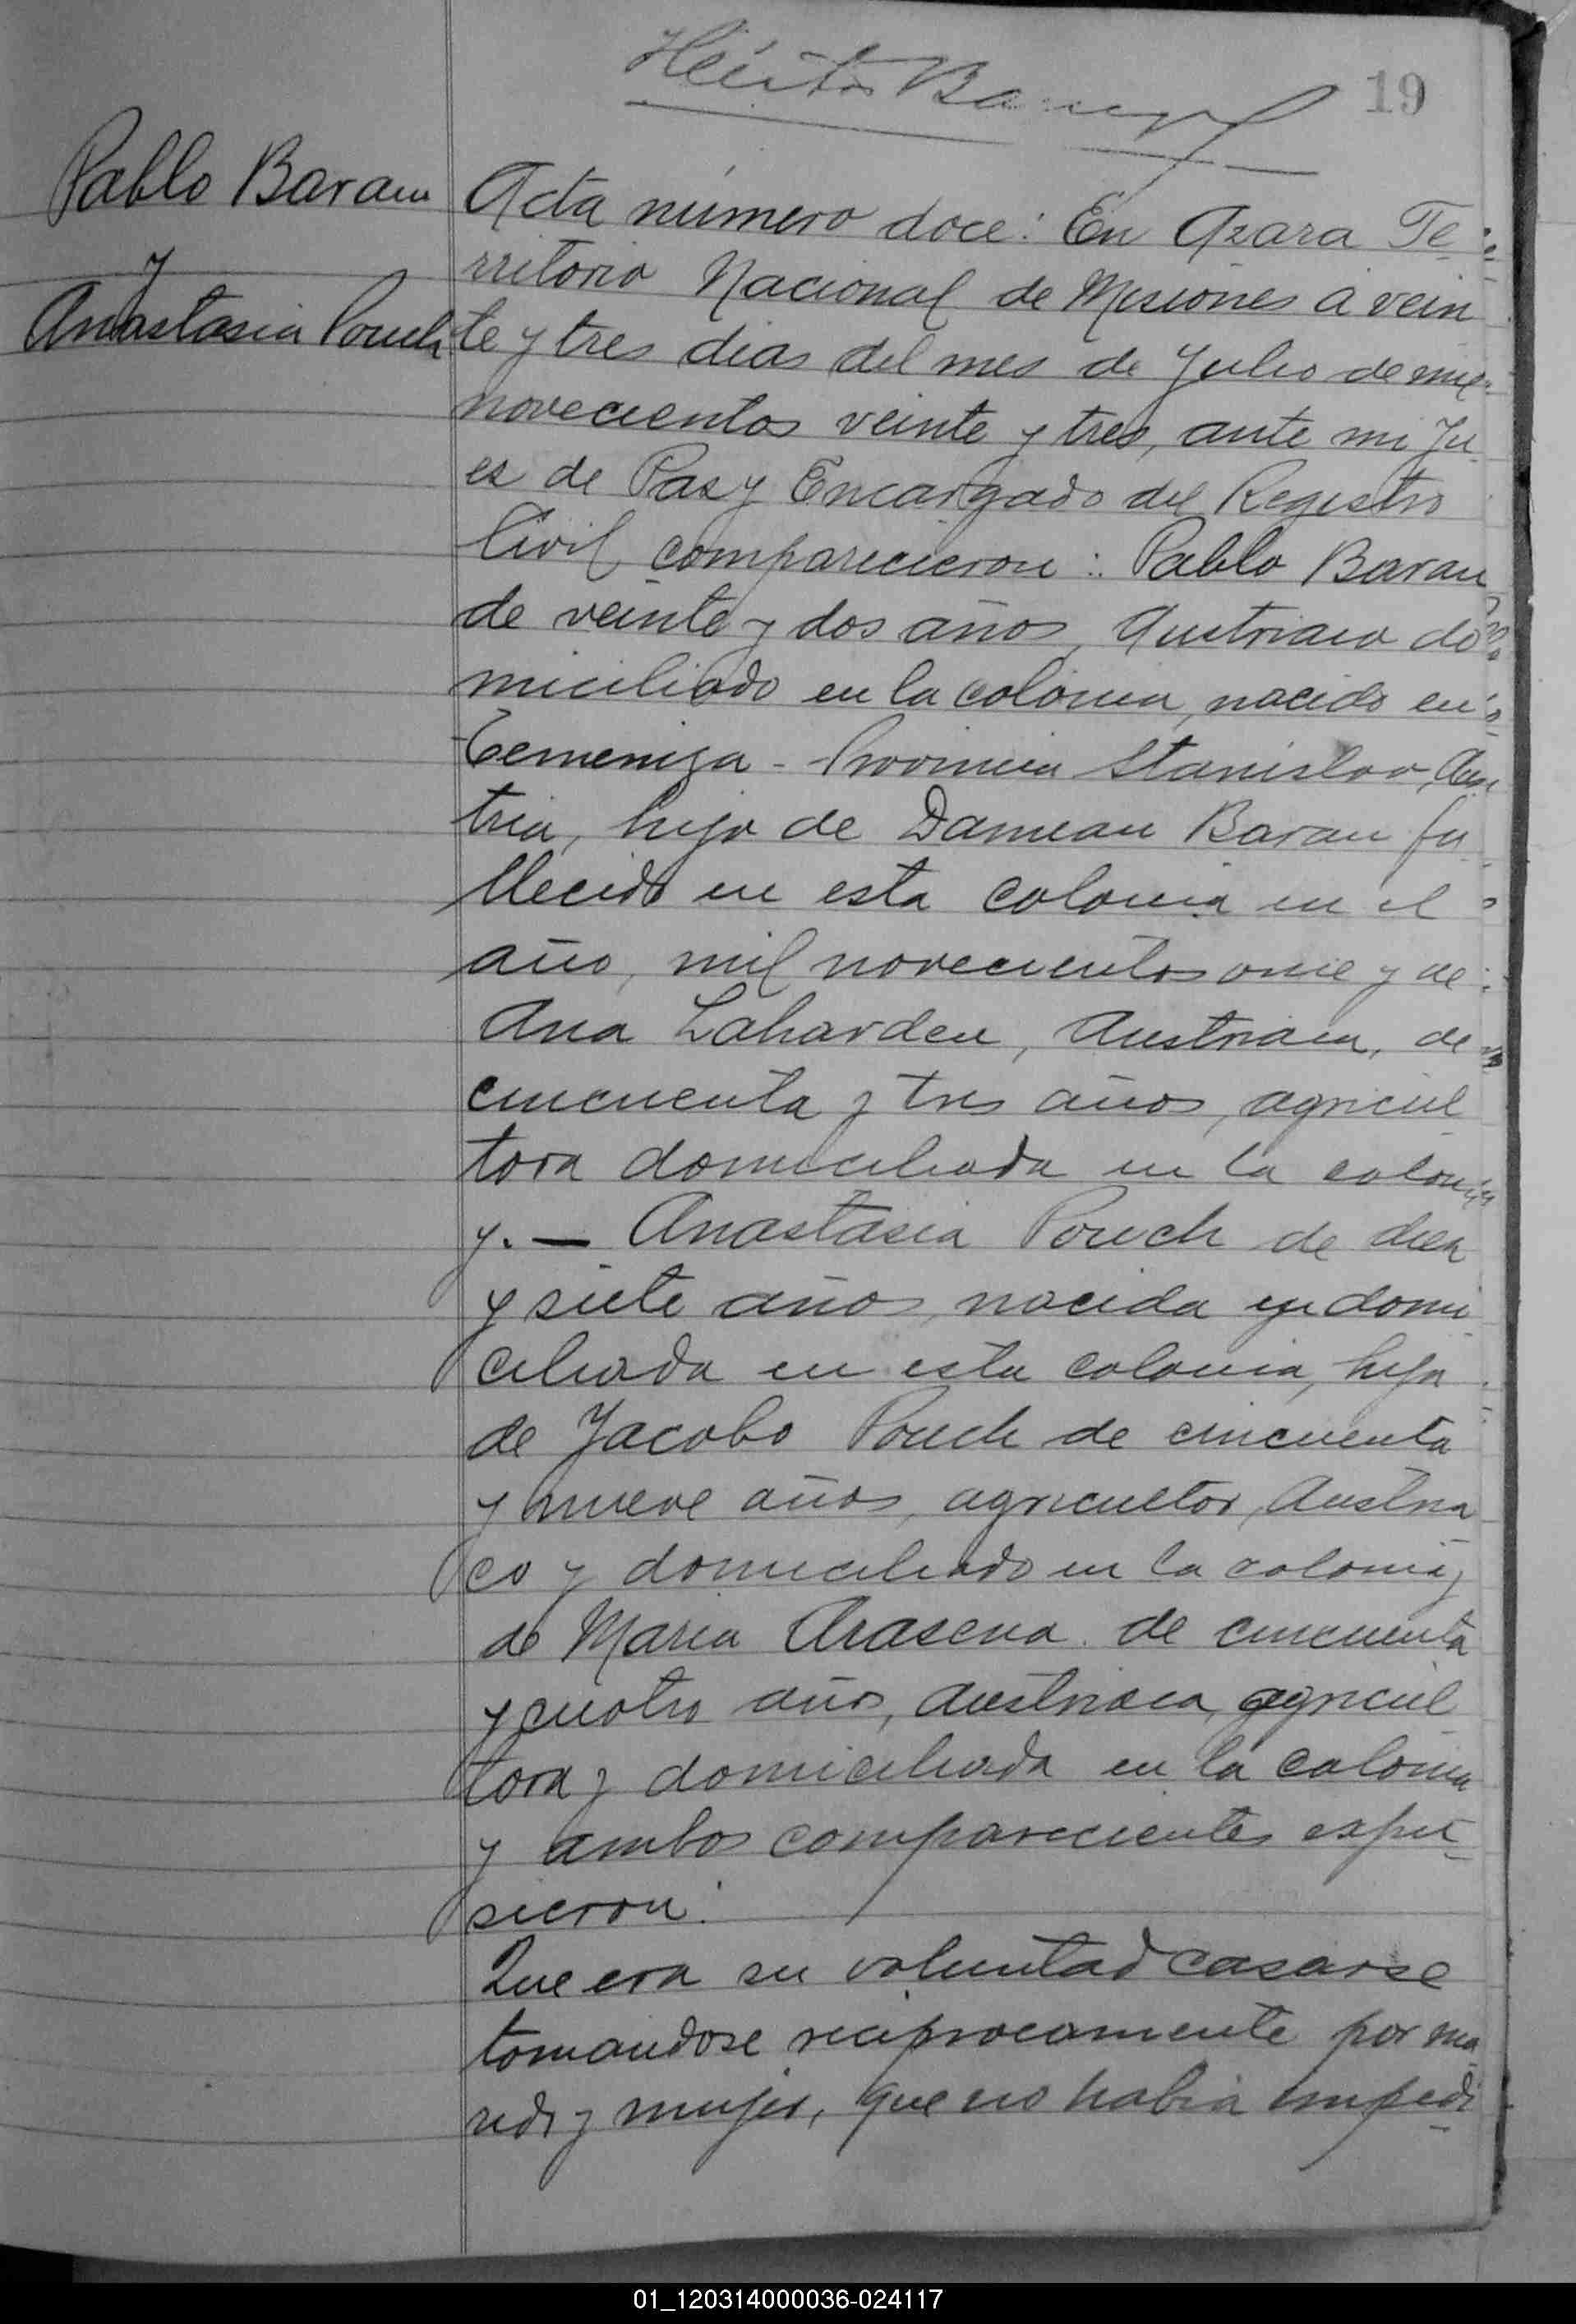 Héctor Bar
19
Pablo Baran
y
Anastasia Pouch
Acta número doce: En Azara Te-
rritorio Nacional de Misiones á vein
te y tres dias del mes de Julio de mil
novecientos veinte y tres, ante mi Ju
ez de Paz y Encargado del Registro
Civil comparecieron: Pablo Baran
de veinte y dos años, Austriaco do
miciliado en la colonia, nacido en
Provincia Stanislao, Aus
tria, hijo de Damean Baran fa
llecido en esta colonia en el
año, mil novecientos once y de
Ana Laharden, Austriaca, de
cincuenta y tres años, agricul
tora domiciliada en la colonia
y. — Anastasia Pouch de diez
y siete años, nacida y domi
ciliada en esta colonia, hija
de Jacobo Pouch de cincuenta
y nueve años, agricultor, Austria
co y domiciliado en la colonia y
de Maria Arasena de cincuenta
y cuatro años, Austriaca, agricul
tora y domiciliada en la colonia
y ambos comparecientes expu-
sieron:
Que era su voluntad casarse
tomandose reciprocamente por ma
rido y mujer, que no habia impedi
01_120314000036-024117